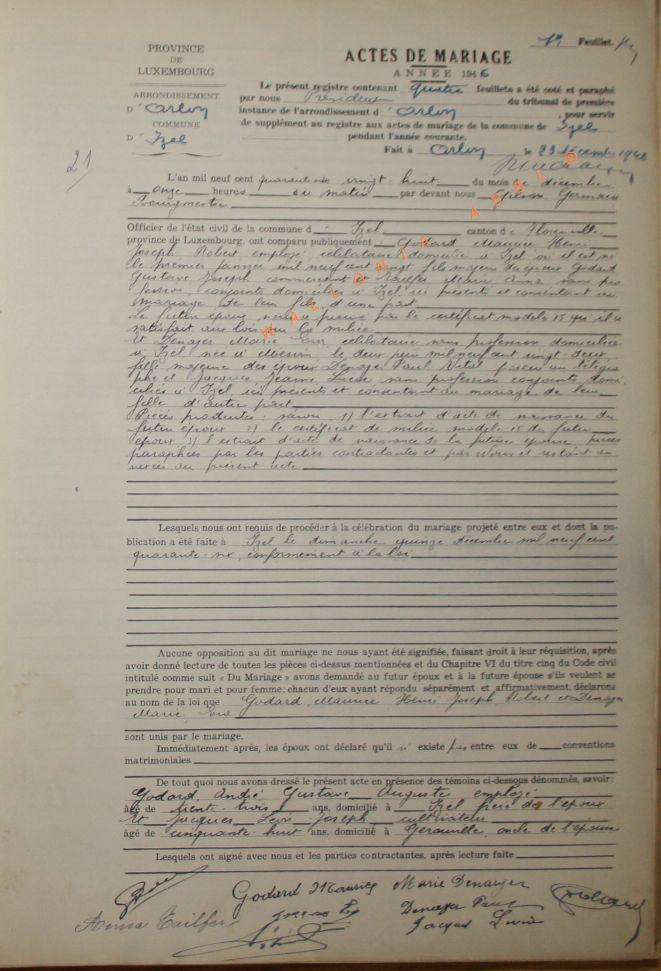 1er Feuillet.
PROVINCE
DE
LUXEMBOURG
ARRONDISSEMENT
D' Arlon
COMMUNE
D' Izel
21
ACTES DE MARIAGE
ANNÉE 1946
Le présent registre contenant quatre feuillets a été coté et paraphé
par nous Président du tribunal de première
instance de l'arrondissement d' Arlon, pour servir
de supplément au registre aux actes de mariage de la commune de Izel
pendant l'année courante.
Fait à Arlon le 23 décembre 1946
L'an mil neuf cent quarante-six vingt-huit du mois de décembre
à onze heures du matin par devant nous Germain
Bourgmestre
Officier de l'état civil de la commune d' Izel canton de Florenville
province de Luxembourg, ont comparu publiquement Godard Maurice Henri
Joseph Robert employé, célibataire domicilié à Izel où il est né
le premier janvier mil neuf cent vingt fils majeur des époux Godard
Gustave Joseph commerçant et Tailfer Marie Anna sans pro
fession conjoints domiciliés à Izel ici présents et consentant au
mariage de leur fils d'une part.
Le futur époux nous a prouvé par le certificat modèle 15 qu'il a
satisfait aux lois sur la milice
Et Denayer Marie Eve célibataire sans profession domiciliée
à Izel née à le deux juin mil neuf cent vingt-deux
fille majeure des époux Denayer Paul Vital
et Jacques Jeanne Lucie sans profession conjoints domi
ciliés à Izel ici présents et consentant au mariage de leur
fille d'autre part
Pièces produites: savoir 1) l'extrait d'acte de naissance du
futur époux 2) le certificat de milice modèle 15 du futur
époux 3) l'extrait d'acte de naissance de la future épouse, pièces
paraphées par les parties contractantes et par nous et restant an
nexées au présent acte
Lesquels nous ont requis de procéder à la célébration du mariage projeté entre eux et dont la pu-
blication a été faite à Izel le dimanche quinze décembre mil neuf cent
quarante-six, conformément à la loi
Aucune opposition au dit mariage ne nous ayant été signifiée, faisant droit à leur réquisition, après
avoir donné lecture de toutes les pièces ci-dessus mentionnées et du Chapitre VI du titre cinq du Code civil
intitulé comme suit « Du Mariage » avons demandé au futur époux et à la future épouse s'ils veulent se
prendre pour mari et pour femme: chacun d'eux ayant répondu séparément et affirmativement, déclarons
au nom de la loi que Godard, Maurice Henri Joseph Robert et Denayer
Marie Eve
sont unis par le mariage.
Immédiatement après, les époux ont déclaré qu'il n'existe pas entre eux de conventions
matrimoniales
De tout quoi nous avons dressé le présent acte en présence des témoins ci-dessous dénommés, savoir:
Godard, André Gustave Auguste employé
âgé de trente-trois ans, domicilié à Izel frère de l'époux
Et Jacques Léon Joseph cultivateur
âgé de cinquante-huit ans, domicilié à Gerouville, oncle de l'épouse
Lesquels ont signé avec nous et les parties contractantes, après lecture faite
Godard Maurice Marie Denayer
Anna Tailfer Denayer Paul
Godard